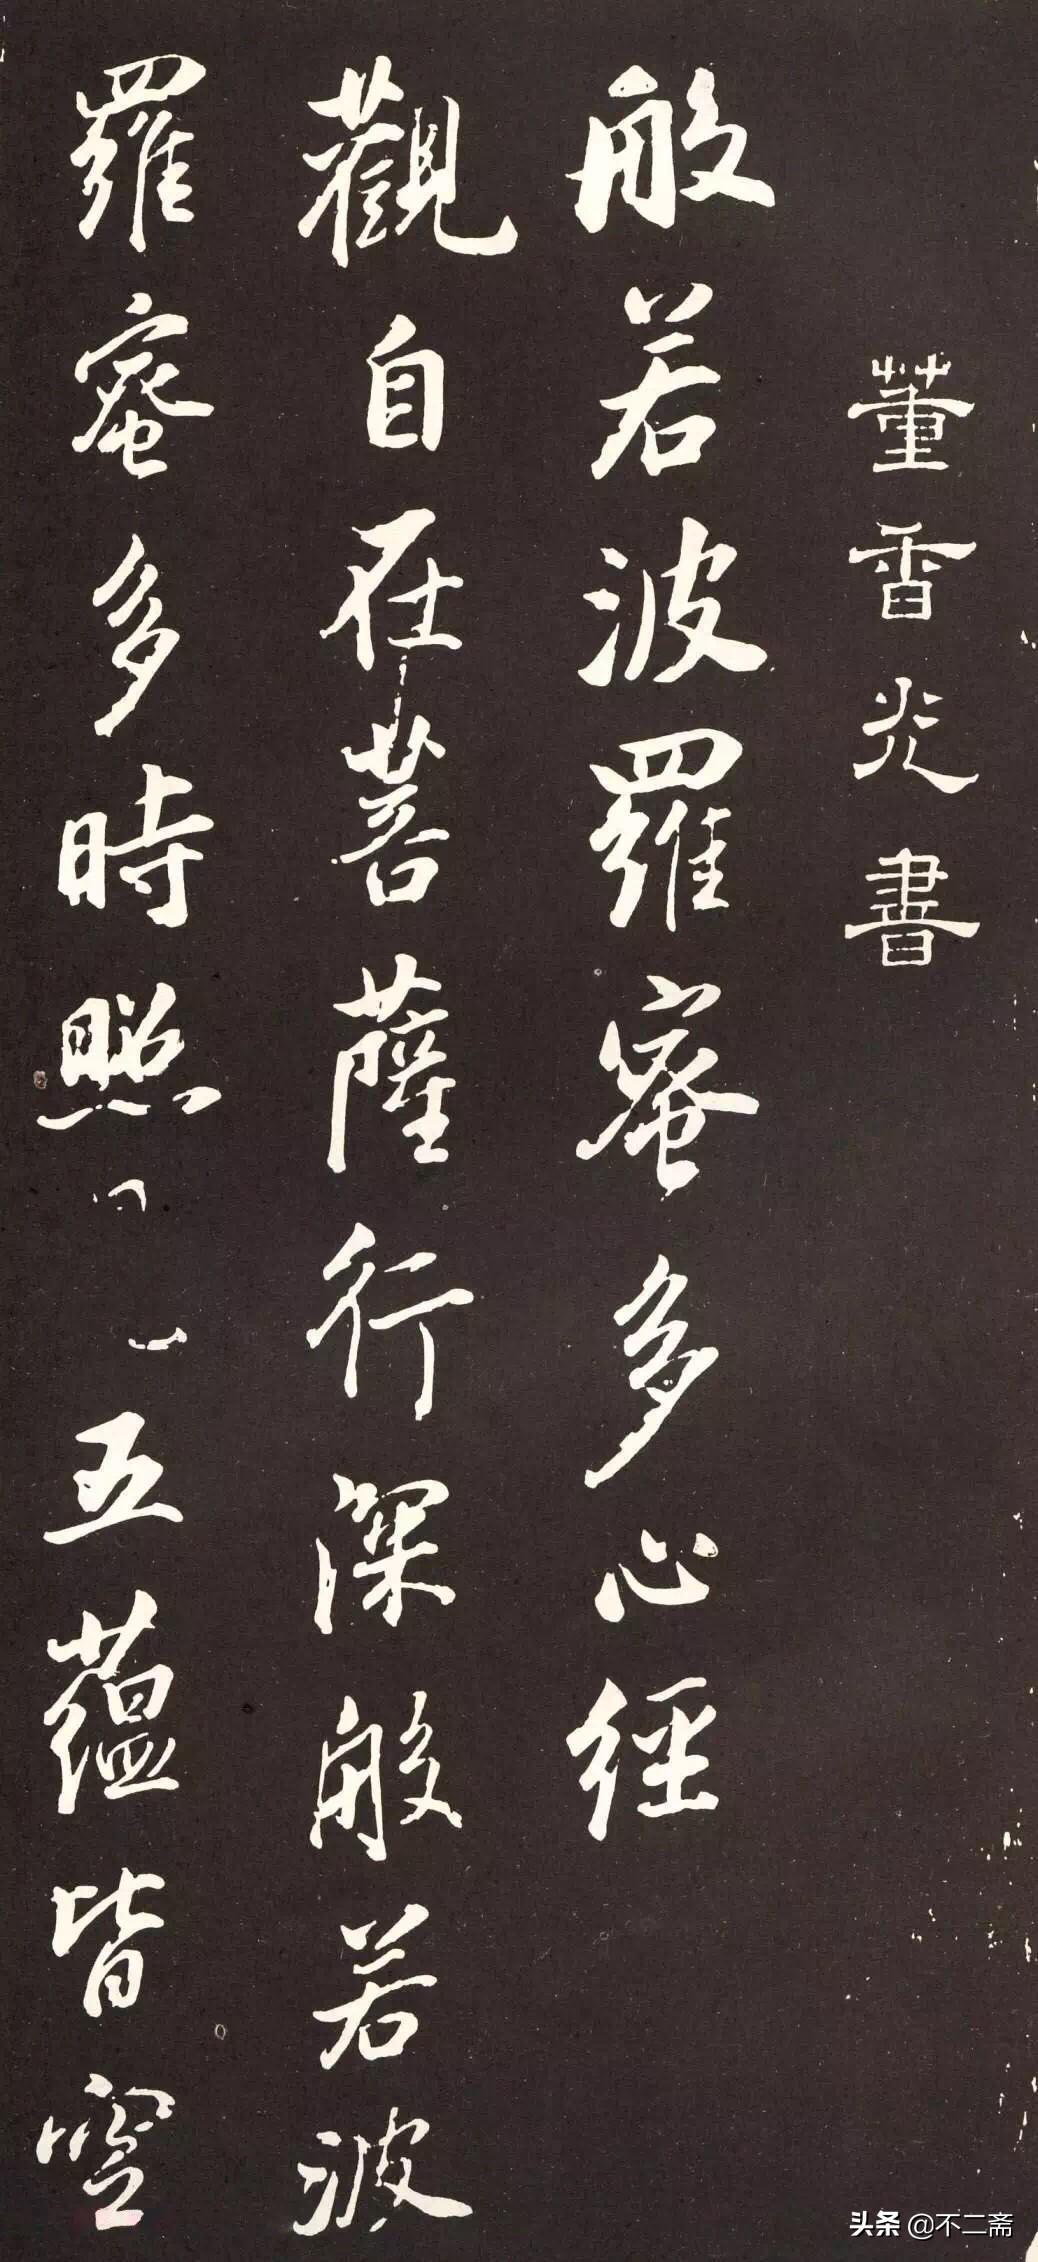 董香光書
般若波羅蜜多心經
觀自在菩薩行深般若波
羅蜜多時照五蘊皆空
头条 @不二斋